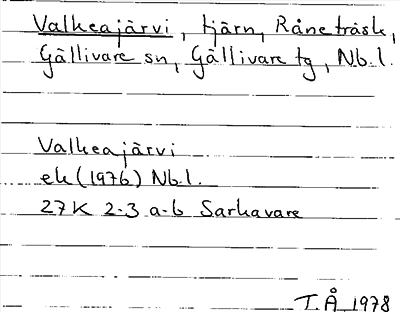 Valkeajärvi, tjärn, Råneträsk,
Gällivare sn, Gällivare tg, Nb.l.
Valkeajärvi
ek (1976) Nb.l.
27K 2-3 a-b Sarkavare
T.Å 1978